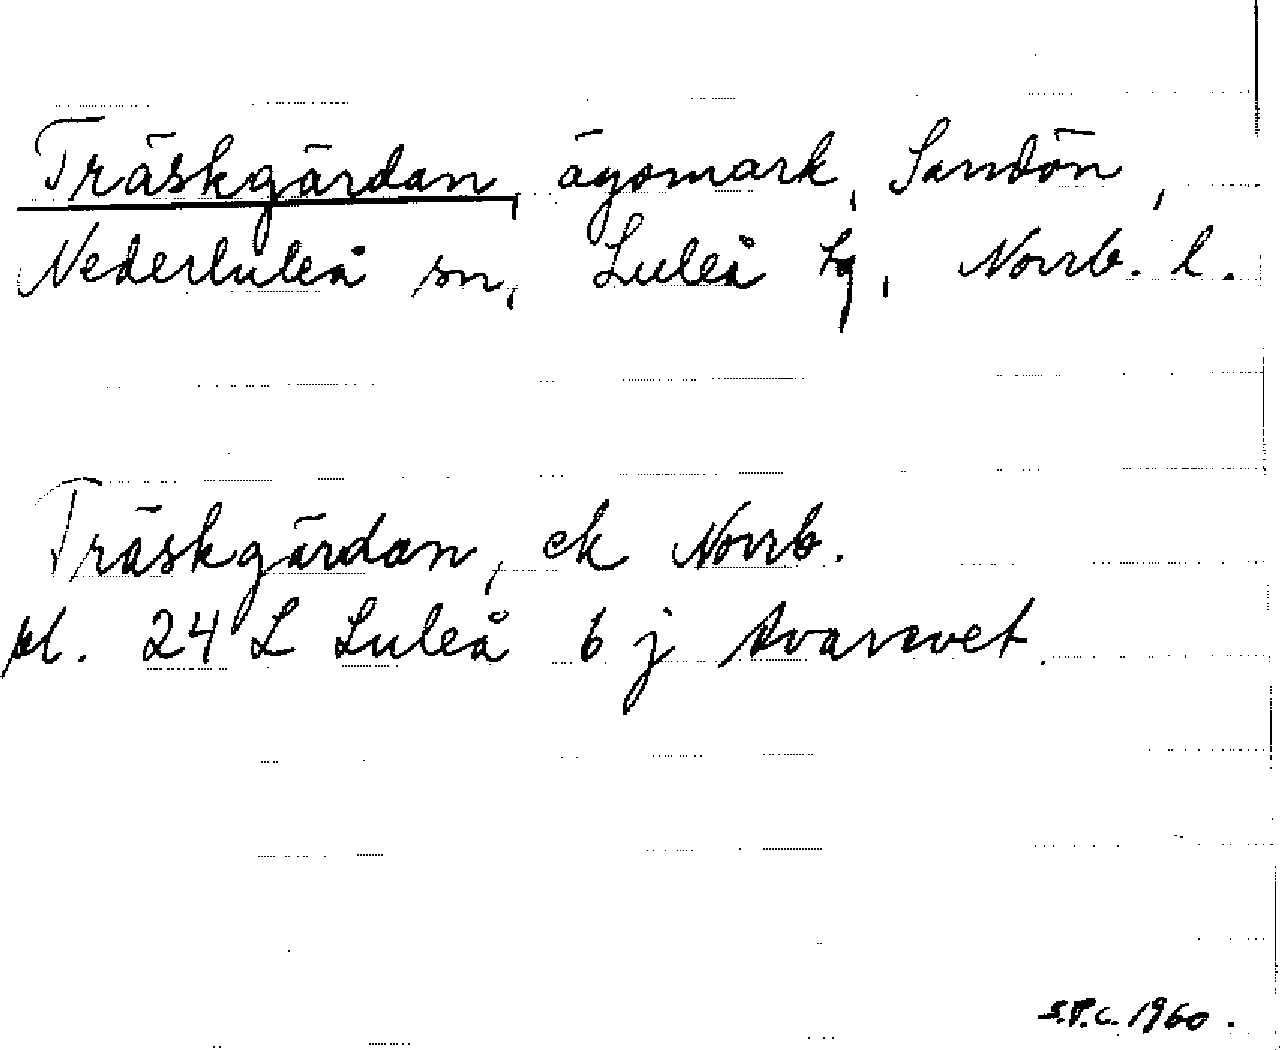 Träskgärdan, ägomark, Sandön,
Nederluleå sn, Luleå tg, Norrb. l.
Träskgärdan, ek Norrb.
bl. 24 L Luleå 6 j Avaravet
S.P.C. 1960.